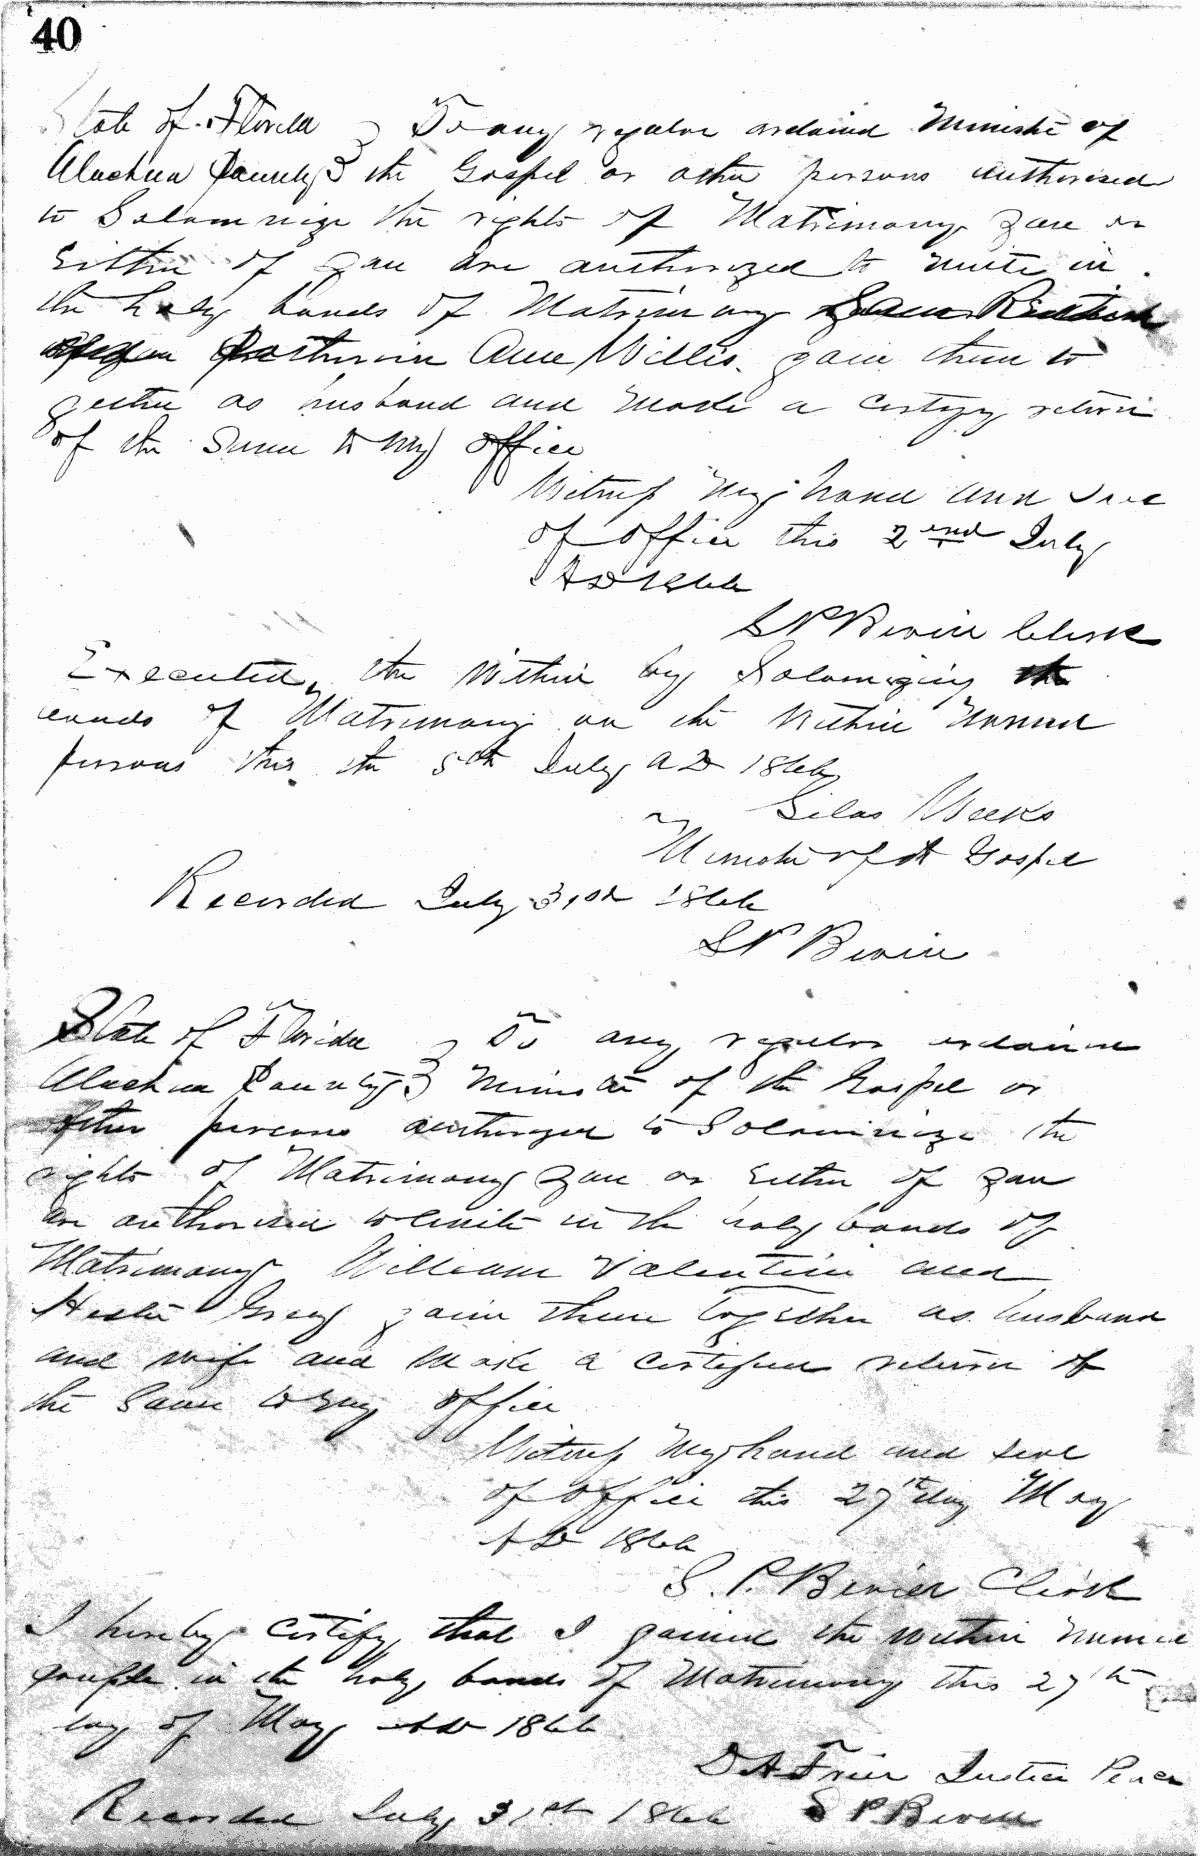 40
State of Florida } To any regular ordaind Ministe of
Alachua County } the Gospel or othe persons authorised
to Solomnize the rights of Matrimony you or
Eithe of you are authorized to unite in
the holy bands of Matrimony Sam
Ann Willis. join them to
gethe as husband and make a certify return
of the same to my office
Witness my hand and Seal
of office this 2nd July
AD 1866
S P Bevill Clerk
Executed, the Within by Solomizing the
bands of Matrimony on the Within named
persons this the 5th July AD 1866
Silas Weeks
Ministe of the Gospel
Recorded July 31st 1866
S P Bevill
State of Florida } To any regular ordained
Alachua County } Ministe of the Gospel or
other persons authorized to Solominize the
rights of Matrimony you or Eithe of you
are authorised to Unite in the holy bands of
Matrimony William Valentine and
Heste Grey join them together as husband
and wife and make a certified return of
the same to my office
Witness My hand and seal
of office this 27th day May
AD 1866
S. P. Bevill Clerk
I hereby certify that I joined the within named
couple in the holy bands of Matrimony this 27th
day of May AD 1866
D A Frier Justice Peace
Recorded July 31st 1866 S P Bevill